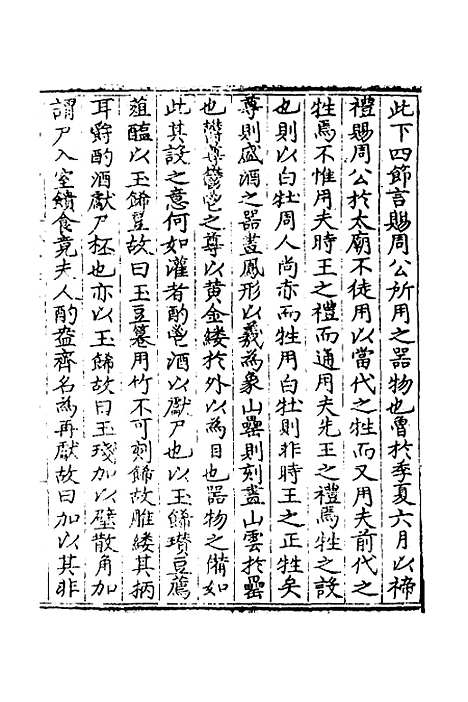 此下四節言賜周公所用之器物也魯於季夏六月以禘
禮賜周公於太廟不徒用以當代之牲而又用夫前代之
牲焉不惟用夫時王之禮而通用夫先王之禮焉牲之設
也則以白牡周人尚赤而牲用白牡則非時王之正牲矣
尊則盛酒之器畫鳳形以羲為象山罍則刻畫山雲於罍
也欎尊鬱鬯之尊以黄金縷於外以為目也器物之備如
此其設之意何如灌者酌鬯酒以獻尸也以玉餙瓚豆薦
葅醢以玉餙豆故曰玉豆篹用竹不可刻餙故雕縷其柄
耳爵酌酒獻尸杯也亦以玉餙故曰玉琖加以壁散角加
謂尸入室饋食竟夫人酌盎齊名為再獻故曰加以其非